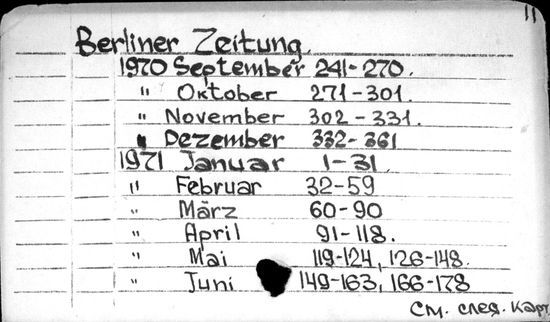 11
Berliner Zeitung.
1970 September 241-270.
" Oktober 271-301.
" November 302-331.
" Dezember 332-361
1971 Januar 1-31.
" Februar 32-59
" März 60-90
" April 91-118.
" Mai 119-124, 126-148.
" Juni 149-163, 166-178
См. след. карт.